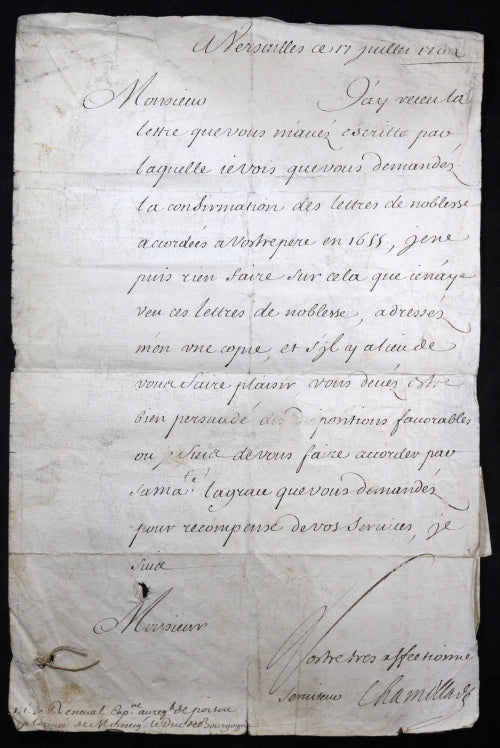 A Versailles ce 17 juillet
Monsieur J'ay receu la
lettre que vous m'avez escritte par
laquelle ie vois que vous demandez
la confirmation des lettres de noblesse
accordées à Vostre pere en 1655, je ne
puis rien faire sur cela que ie n'aye
veu ces lettres de noblesse, adressez
m'en une copie, et s'il y a lieu de
vous faire plaisir vous devez estre
bien persuadé des dispositions favorables
ou je suis de vous faire accorder par
sa ma.té la grace que vous demandez
pour recompense de vos services, je
suis
Monsieur
Vostre tres affectionné
serviteur Chamillart
Cap.ne au reg.t de poitou
de Monseig.r le Duc de Bourgogne